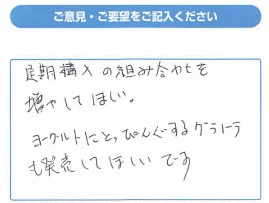 ご意見・ご要望をご記入ください
定期購入の組み合わせを
増やしてほしい。
ヨーグルトにとっぴんぐするグラノーラ
も発売してほしいです